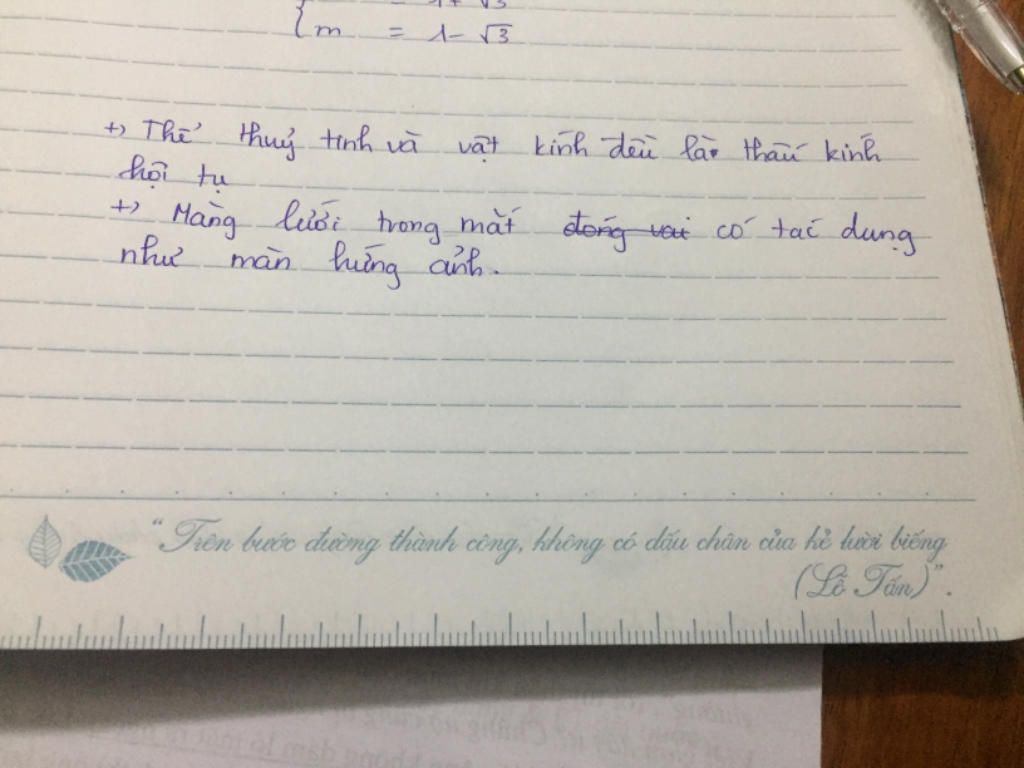 = 1+ √3
m = 1- √3
+) Thể thuỷ tinh và vật kính đều là thấu kính
hội tụ
+) Màng lưới trong mắt đóng vai có tác dụng
như màn hứng ảnh.
“Trên bước đường thành công, không có dấu chân của kẻ lười biếng
(Lỗ Tấn)”.